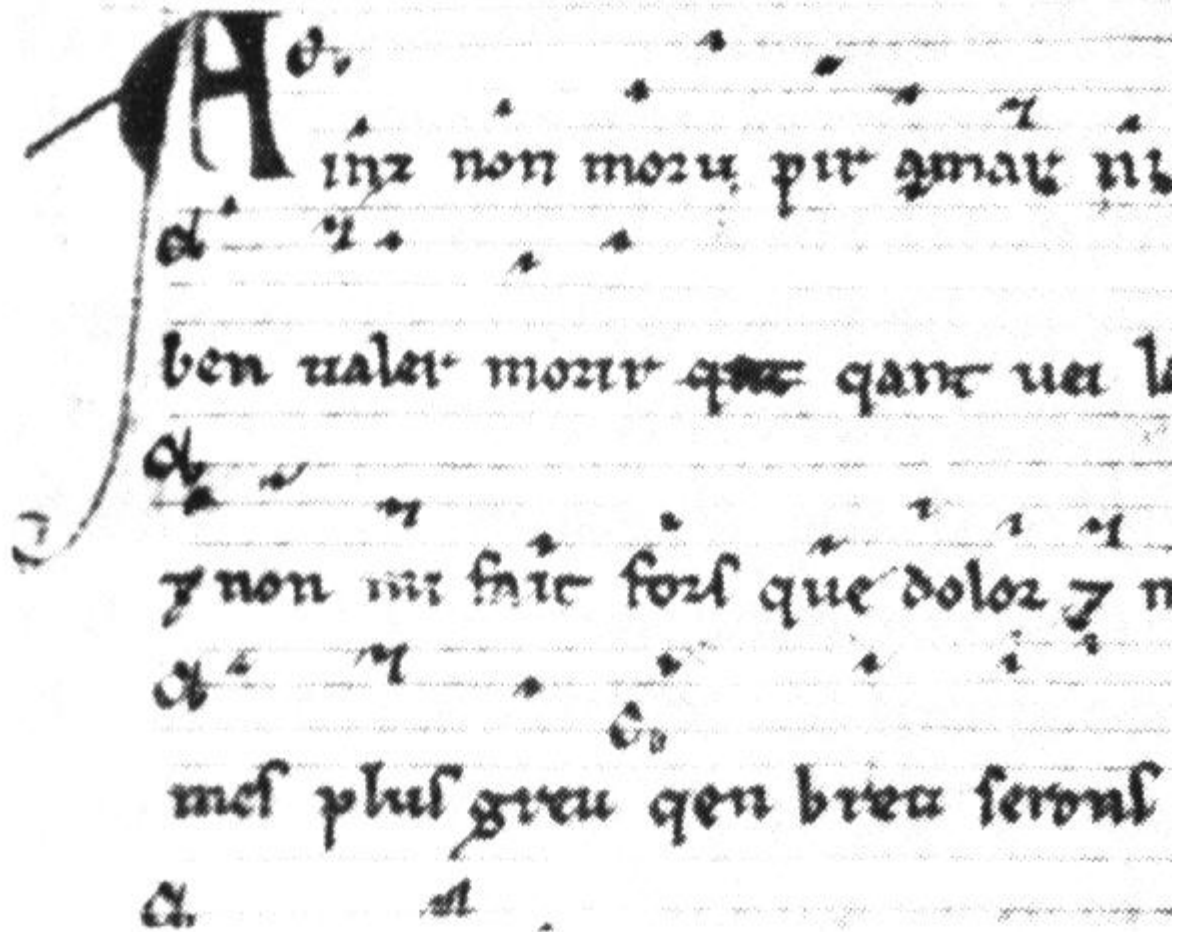 A inz non moru pir amar ni
ben ualer morir qant uei
⁊ non mi fait fors que dolor ⁊
mes plus greu qen breu serons